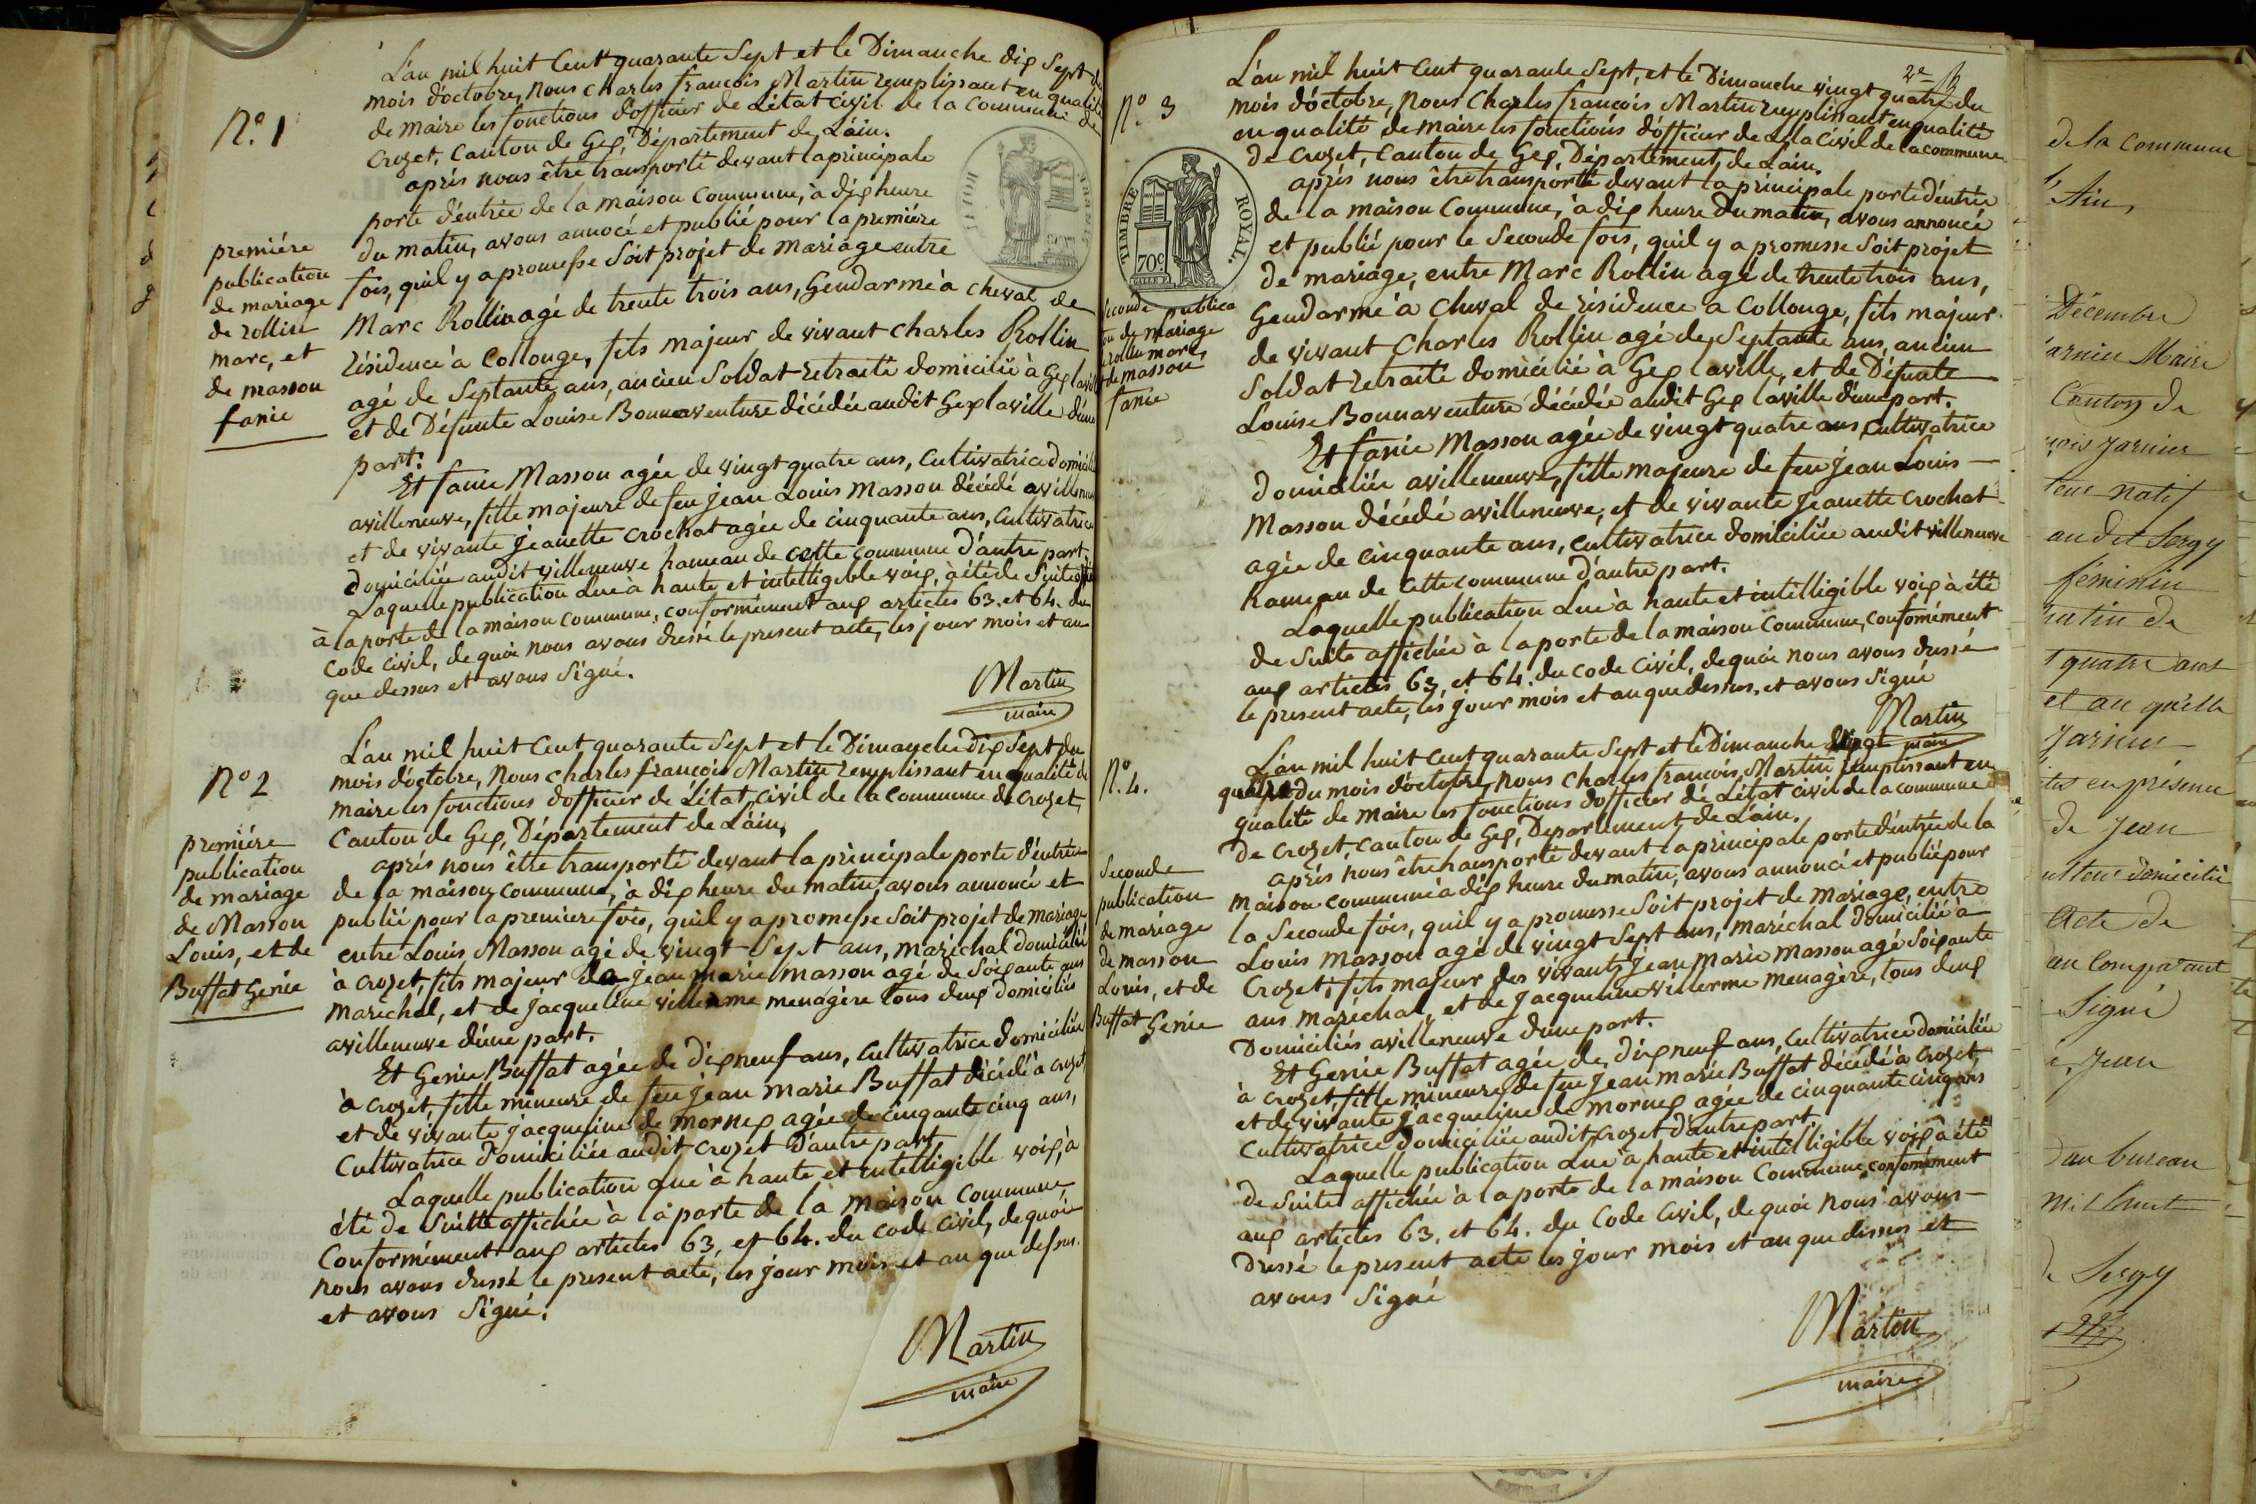 L'an mil huit Cent quarante Sept et le Dimanche dix Sept du
mois d'octobre, Nous Charles françois Martin remplissant en qualité
de maire les fonctions d'officier de L'état Civil de la Commune de
Crozet, Canton de Gex, Département de L'ain.
N.º 1
après nous être transporté devant la principale
porte d'entrée de la maison Commune, à dix heure
du matin, avons annocé et publié pour la première
fois, quil y a promesse Soit projet de mariage entre
première
publication
de mariage
de rollin
marc, et
de masson
fanie
Marc Rollin agé de trente trois ans, Gendarme à cheval de
résidence à Collonge, fils majeur de vivant Charles Rollin
agé de Septante ans, ancien Soldat retraité domicilié à Gex la ville
et de Défunte Louise Bonnaventure décédée audit Gex laville d'une
part.
Et fanie Masson agée de vingt quatre ans, Cultivatrice domiciliée
avilleneuve, fille majeure de feu jean Louis Masson décédé avilleneuve
et de vivante jeanette Crochat agée de cinquante ans, Cultivatrice
domiciliée audit villeneuve hameau de cette commune d'autre part.
Laquelle publication lue à haute et intelligible voix, à été de Suite affichée
à la porte de la maison Commune, conformément aux articles 63. et 64. du
Code Civil, de quoi nous avons dressé le present acte, les jour mois et an
que dessus et avons Signé.
Martin
maire
N.º 2
L'an mil huit Cent quarante Sept et le Dimanche dix Sept du
mois d'octobre, Nous Charles françois Martin remplissant en qualité de
maire les fonctions d'officier de L'état Civil de la Commune de Crozet,
Canton de Gex, Département de L'ain,
première
publication
de mariage
de Masson
Louis, et de
Buffat Genie
après nous être transporté devant la principale porte d'entrée
de la maison Commune, à dix heure du matin, avons annoncé et
publié pour la première fois, quil y a promesse Soit projet de mariage
entre Louis Masson agé de vingt Sept ans, maréchal domicilié
à Crozet, fils majeur de jean marie masson agé de Soixante ans
maréchal, et de jacqueline villerme menagère tous deux domiciliés
avilleneuve d'une part.
Et Genie Buffat agée de dix neuf ans, Cultivatrice domiciliée
à Crozet, fille mineure de feu jean marie Buffat décédé à Crozet
et de vivante jacqueline de mornex agée de cinqante cinq ans,
Cultivatrice domiciliée audit Crozet d'autre part,
Laquelle publication lue à haute et intelligible voix, à
été de Suitte affichée à la porte de la maison Commune,
Conformément aux articles 63, et 64. du code Civil, de quoi
nous avons dressé le present acte, les jour mois et an que dessus.
et avons Signé.
Martin
maire
2e
L'an mil huit Cent quarante Sept, et le Dimanche vingt quatre du
mois d'octobre, Nous Charles françois Martin remplissant en qualité
en qualité de maire les fonctions d'officier de L'éta Civil de la commune
de Crozet, Canton de Gex, Département de L'ain.
Nº. 3
TIMBRE ROYAL.
70c.
Seconde publica
on de mariage
rollin marc,
de masson
fanie
après nous être transporté devant la principale porte d'entrée
de la maison Commune, à dix heure du matin, avons annoncé
et publié pour le Seconde fois, quil y a promesse Soit projet
de mariage, entre Marc Rollin agé de trente trois ans,
Gendarme à Cheval de résidence a Collonge, fils majeur
de vivant Charles Rollin agé de Septante ans, ancien
Soldat retraité domicilié à Gex laville, et de Défunte
Louise Bonnaventure décédée audit Gex laville d'une part.
Et fanie Masson agée de vingt quatre ans Cultivatrice
domiciliée avilleneuve, fille majeure de feu jean Louis
Masson décédé avilleneuve, et de vivante jeanette Crochat
agée de cinquante ans, cultivatrice domiciliée audit villeneuve
hameau de cette commune d'autre part.
Laquelle publication lue à haute et intelligible voix à été
de Suite affichée à la porte de la maison Commune, conformément
aux articles 63, et 64. du Code Civil, de quoi nous avons dressé
le present acte, les jour mois et an que dessus, et avons Signé
Martin
maire
Nº. 4.
L'an mil huit Cent quarante Sept et le Dimanche vingt
quatre du mois d'octobre, Nous Charles françois Martin remplissant en
qualité de maire les fonctions d'officier de L'état Civil de la commune
de Crozet, canton de Gex, Departement de L'ain.
Seconde
publication
de mariage
de masson
Louis, et de
Buffat Genie
après nous être transporté devant la principale porte d'entrée de la
maison commune à dix heure du matin, avons annoncé et publié pour
la Seconde fois, quil y a promesse Soit projet de mariage, entre
Louis masson agé de vingt Sept ans, maréchal domicilié à
Crozet, fils majeur des vivants jean marie Masson agé Soixante
ans maréchal, et de jacqueline villerme menagère, tous deux
Domiciliés avilleneuve d'une part.
Et Genie Buffat agée de dix neuf ans, Cultivatrice domiciliée
à Crozet, fille mineure de feu jean marie Buffat décédé à Crozet,
et de vivante jacqueline de mornex agée de cinquante cinq ans
Cultivatrice domiciliée audit Crozet d'autre part.
Laquelle publication lue à haute et intelligible voix à été
de Suite affichée à la porte de la maison Commune conformément
aux articles 63, et 64. du Code Civil, de quoi nous avons
dressé le present acte les jour mois et an que dessus et
avons Signé
Martin
maire
de la commune
Ain,
Décembre
Maire
Canton de
natif
audit Sergy
féminin
matin de
quatre ans
et an qu'elle
en présence
de Jean
domicilié
acte de
comparant
Signé
Jean
au bureau
mil huit
de Sergy